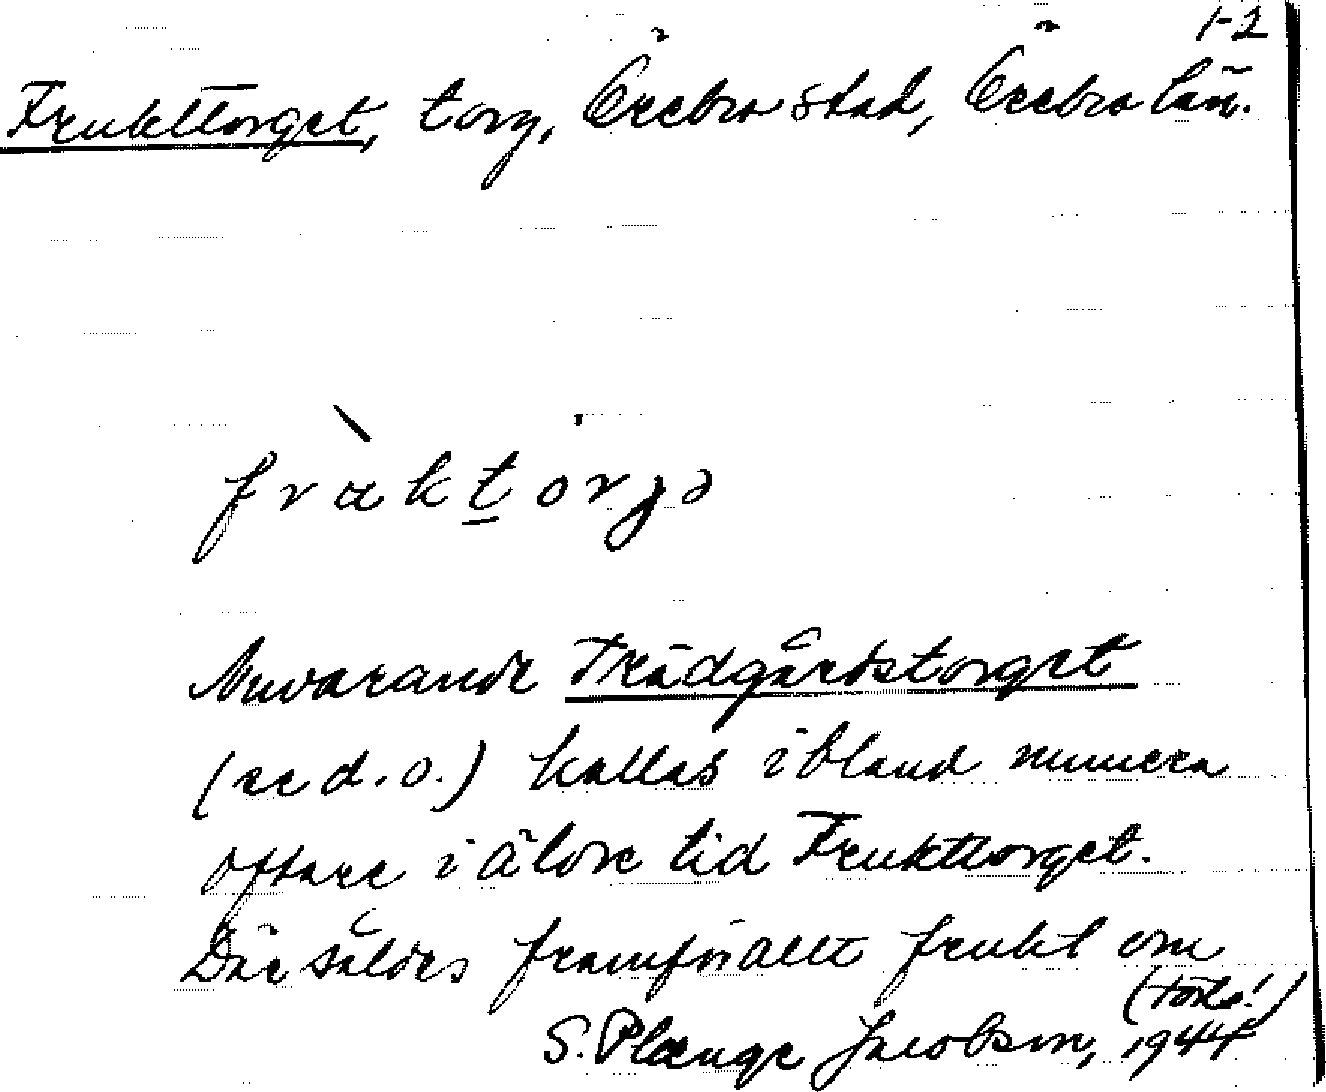 1-2
Frukttorget, torg, Örebro stad, Örebro län.
fràktorgə
Nuvarande Trädgårdstorget
(se d. o.) kallas ibland numera
oftare i äldre tid Frukttorget.
Där såldes framförallt frukt om
(torsd!)
S. Plænge Jacobson, 1944